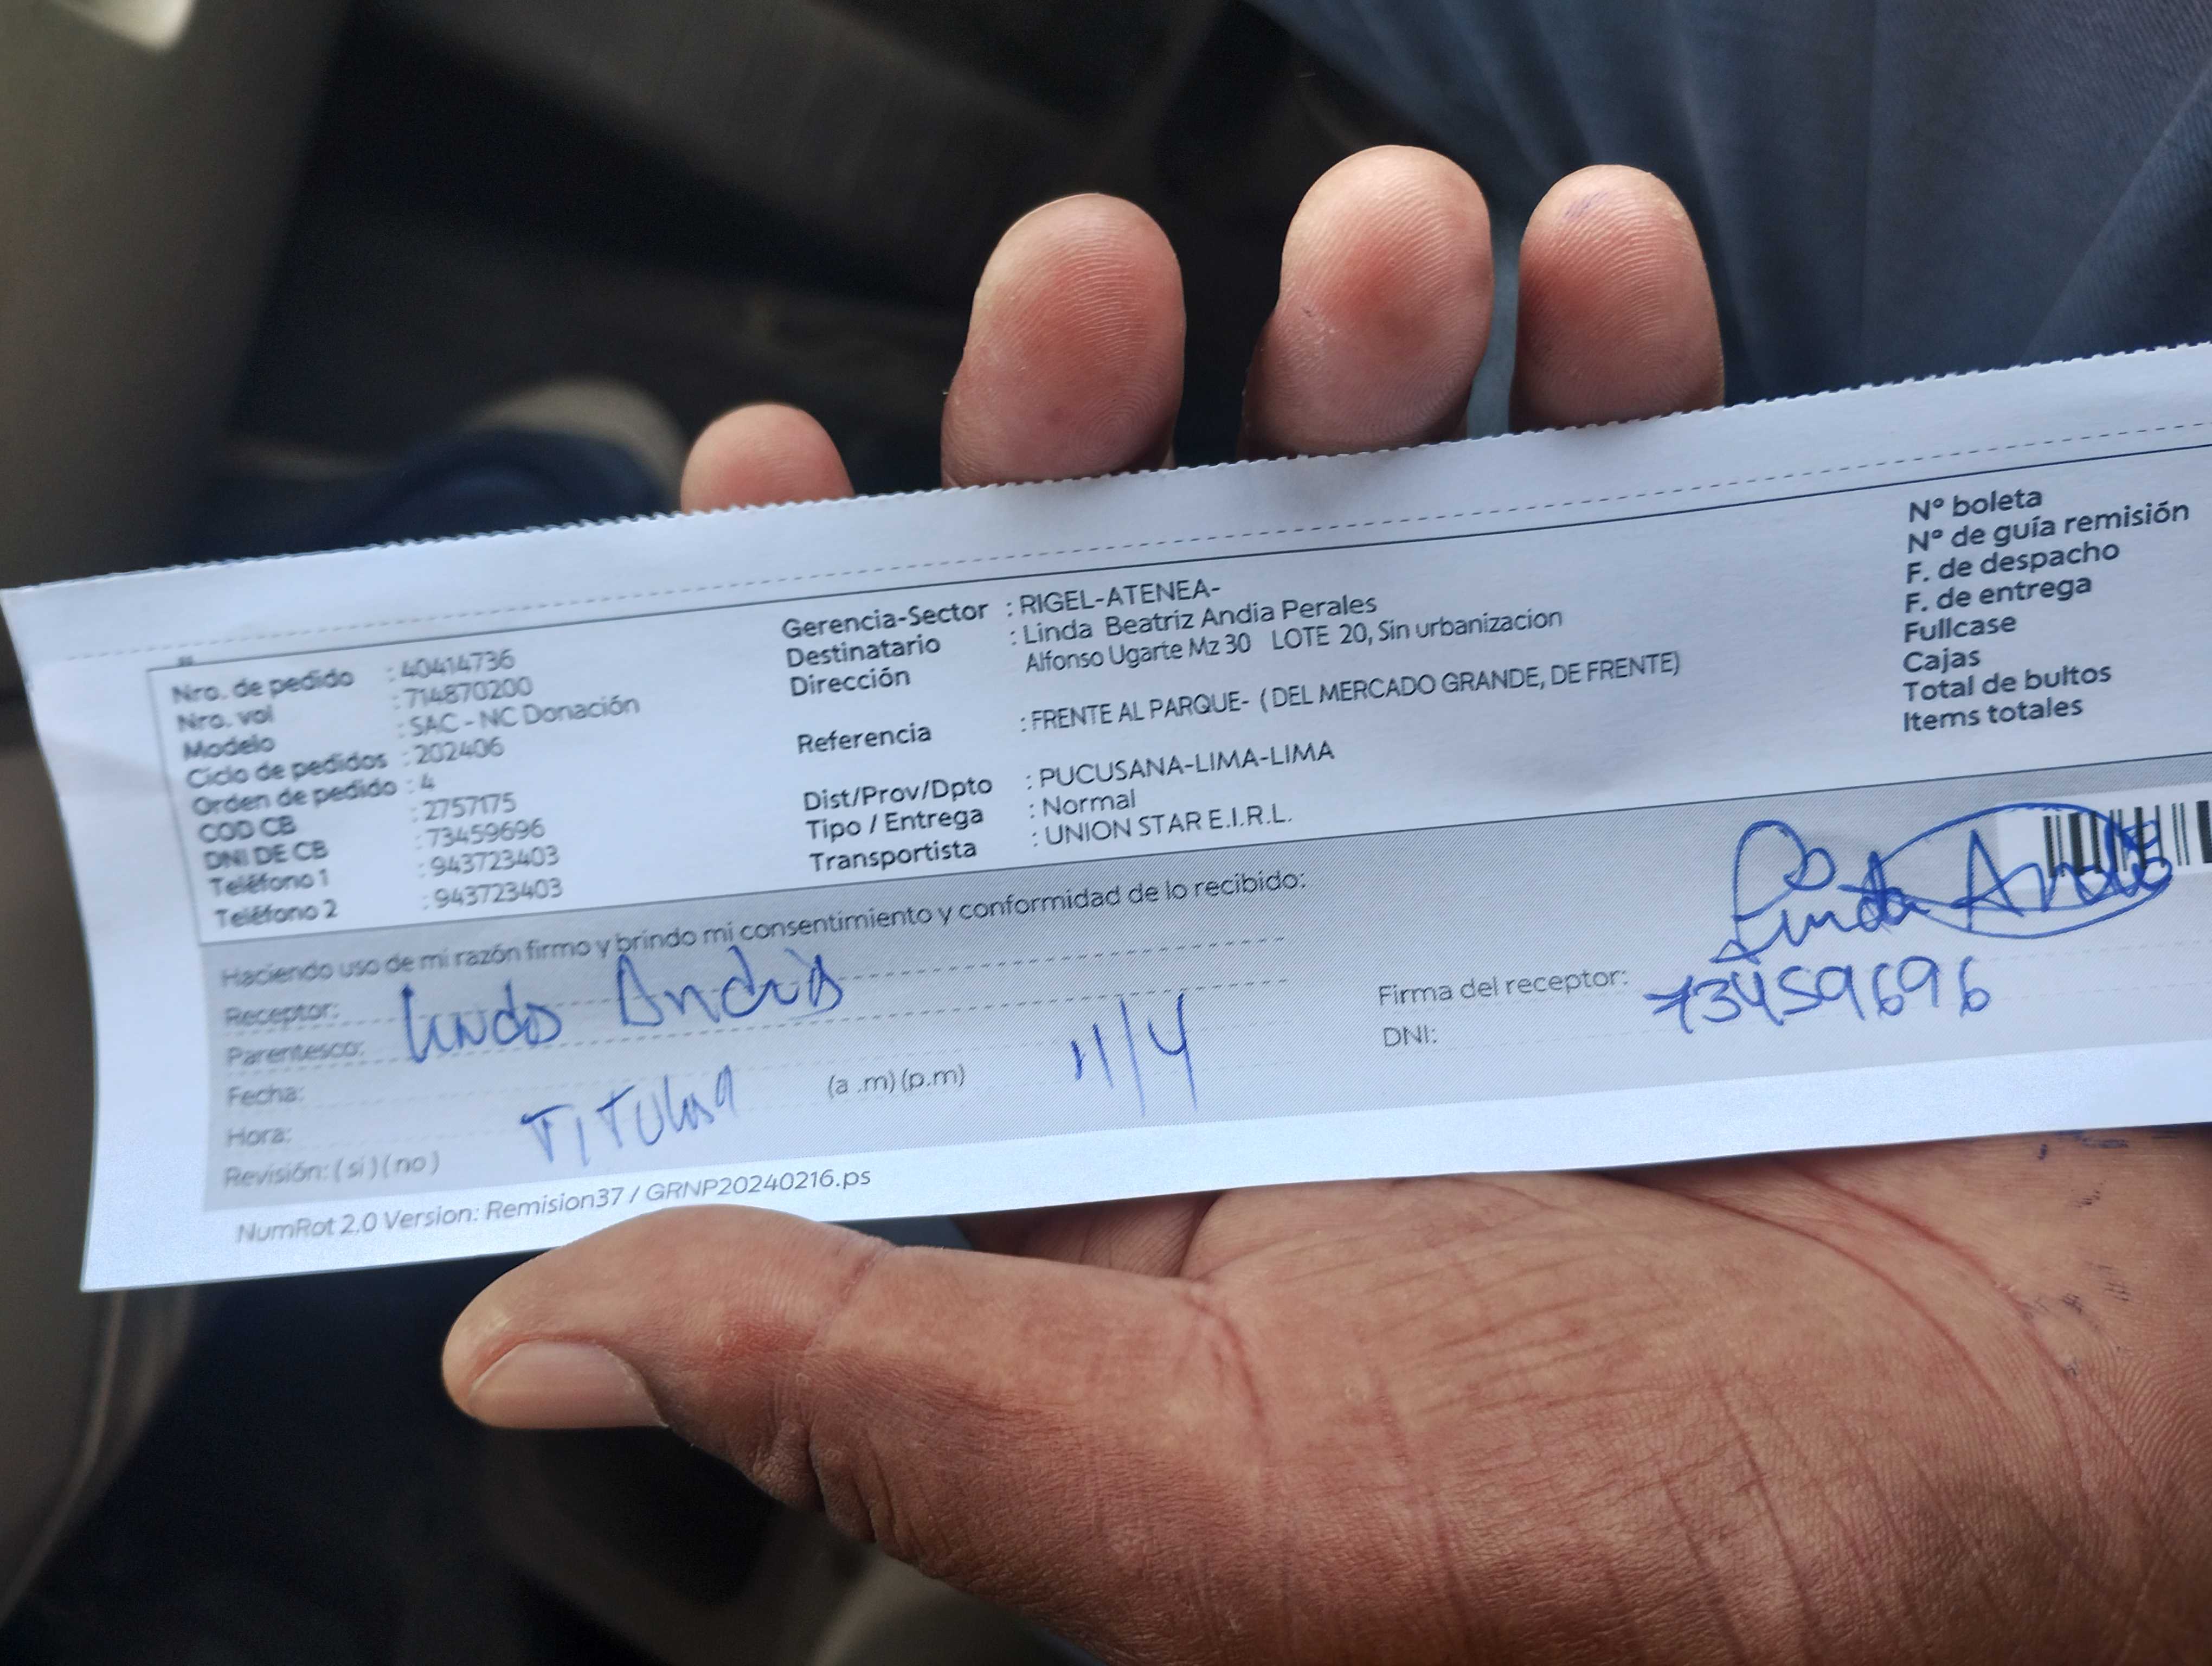 Nro. de pedido : 40414736
Nro. vol : 714870200
Modelo : SAC - NC Donación
Ciclo de pedidos : 202406
Orden de pedido : 4
COD CB : 2757175
DNI DE CB : 73459696
Teléfono 1 : 943723403
Teléfono 2 : 943723403
Gerencia-Sector : RIGEL-ATENEA-
Destinatario : Linda Beatriz Andia Perales
Dirección Alfonso Ugarte Mz 30 LOTE 20, Sin urbanizacion
Referencia : FRENTE AL PARQUE- ( DEL MERCADO GRANDE, DE FRENTE)
Dist/Prov/Dpto : PUCUSANA-LIMA-LIMA
Tipo / Entrega : Normal
Transportista : UNION STAR E.I.R.L.
Nº boleta
Nº de guía remisión
F. de despacho
F. de entrega
Fullcase
Cajas
Total de bultos
Items totales
Haciendo uso de mi razón firmo y brindo mi consentimiento y conformidad de lo recibido:
Receptor: Linda Andia
Parentesco:
Fecha: 11/4
Hora: (a .m) (p.m)
Revisión: ( si ) ( no ) TITULAR
Firma del receptor: Linda Andia
DNI: 73459696
NumRot 2.0 Version: Remision37 / GRNP20240216.ps